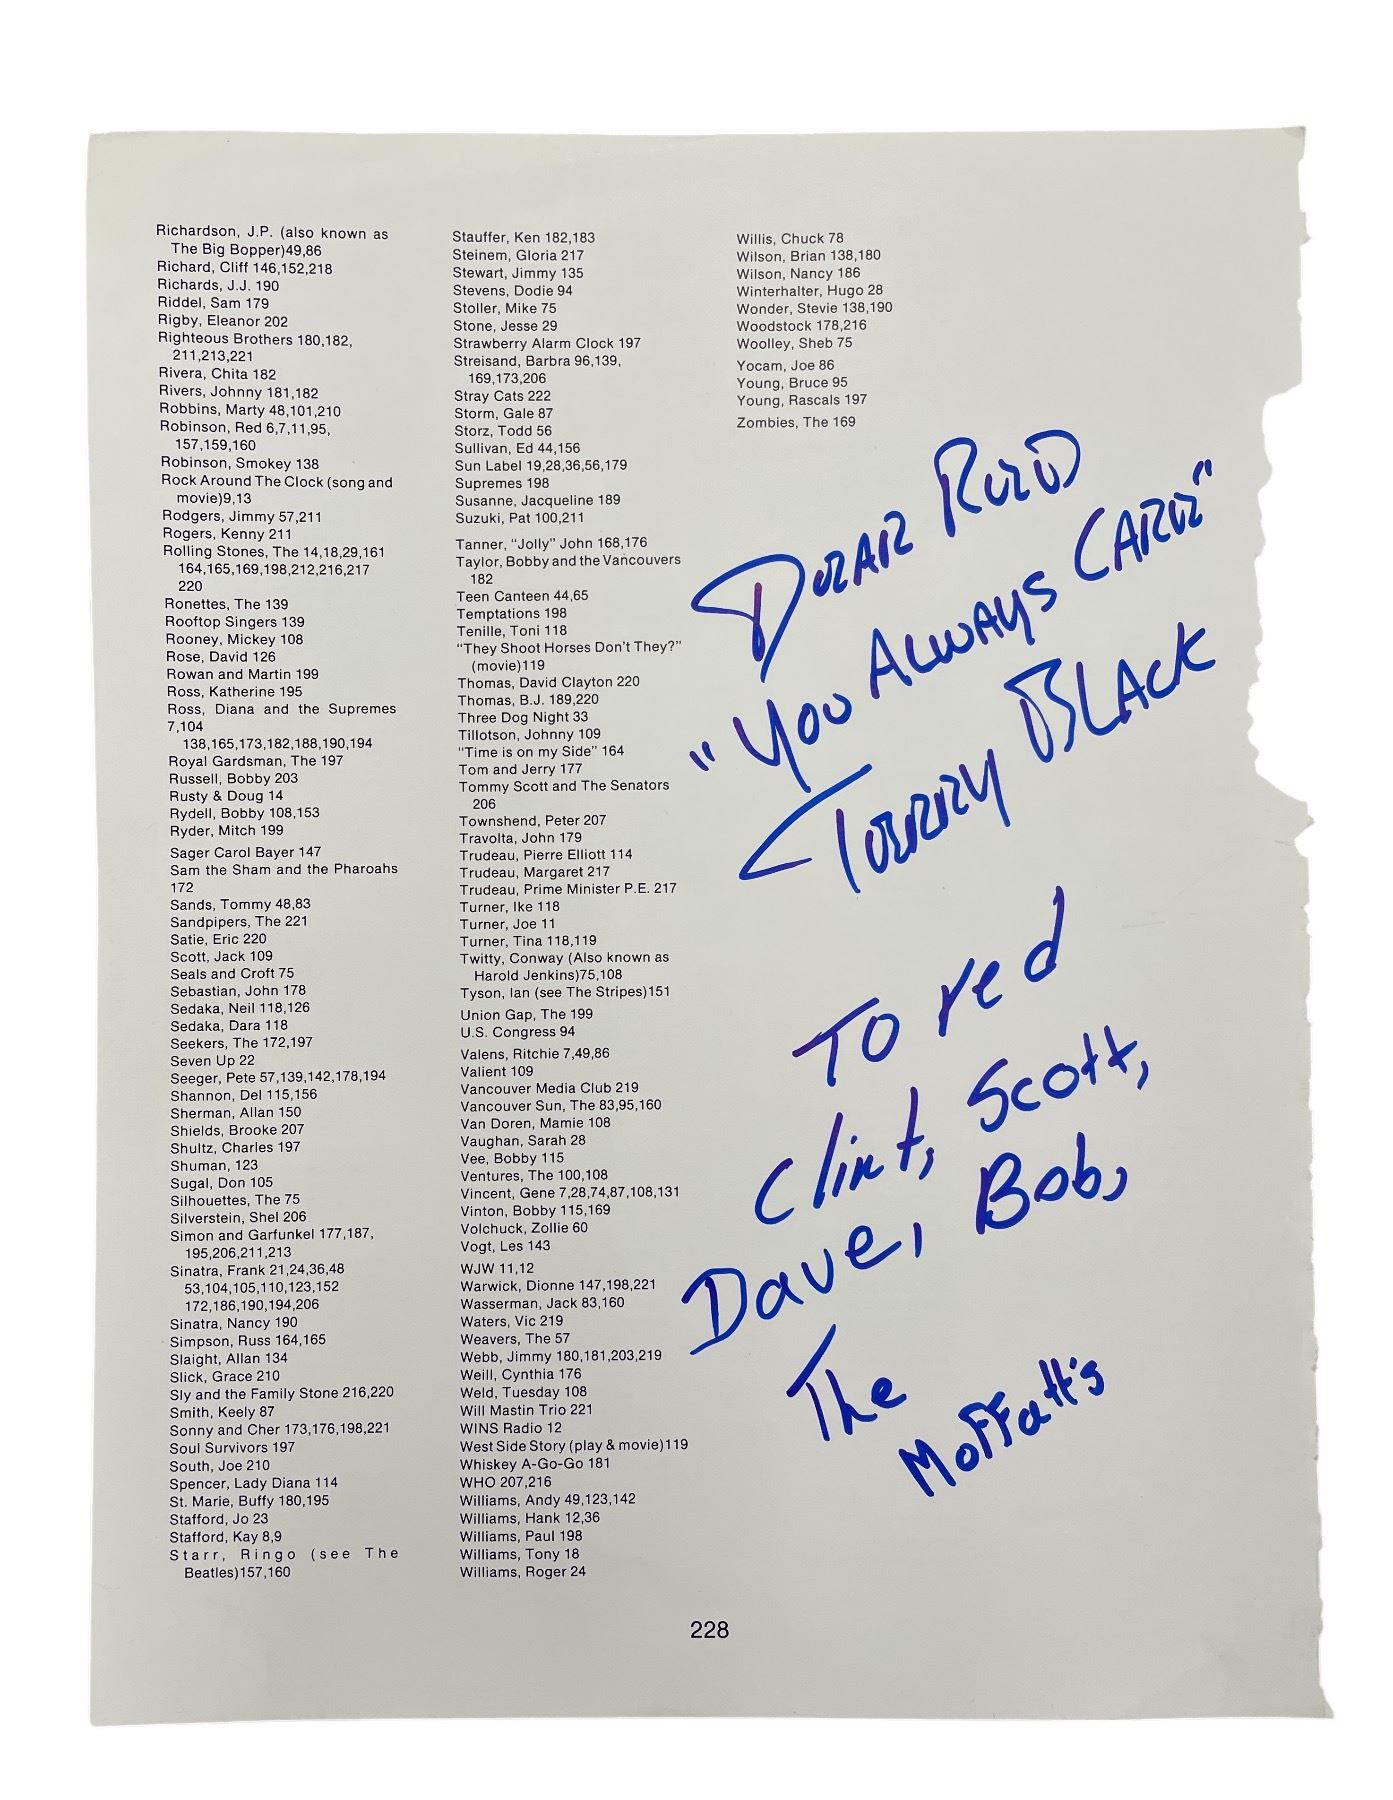 Richardson, J.P. (also known as
The Big Bopper)49,86
Richard, Cliff 146,152,218
Richards, J.J. 190
Riddel, Sam 179
Rigby, Eleanor 202
Righteous Brothers 180,182,
211,213,221
Rivera, Chita 182
Rivers, Johnny 181,182
Robbins, Marty 48,101,210
Robinson, Red 6,7,11,95,
157,159,160
Robinson, Smokey 138
Rock Around The Clock (song and
movie)9,13
Rodgers, Jimmy 57,211
Rogers, Kenny 211
Rolling Stones, The 14,18,29,161
164,165,169,198,212,216,217
220
Ronettes, The 139
Rooftop Singers 139
Rooney, Mickey 108
Rose, David 126
Rowan and Martin 199
Ross, Katherine 195
Ross, Diana and the Supremes
7,104
138,165,173,182,188,190,194
Royal Gardsman, The 197
Russell, Bobby 203
Rusty & Doug 14
Rydell, Bobby 108,153
Ryder, Mitch 199
Sager Carol Bayer 147
Sam the Sham and the Pharoahs
172
Sands, Tommy 48,83
Sandpipers, The 221
Satie, Eric 220
Scott, Jack 109
Seals and Croft 75
Sebastian, John 178
Sedaka, Neil 118,126
Sedaka, Dara 118
Seekers, The 172,197
Seven Up 22
Seeger, Pete 57,139,142,178,194
Shannon, Del 115,156
Sherman, Allan 150
Shields, Brooke 207
Shultz, Charles 197
Shuman, 123
Sugal, Don 105
Silhouettes, The 75
Silverstein, Shel 206
Simon and Garfunkel 177,187,
195,206,211,213
Sinatra, Frank 21,24,36,48
53,104,105,110,123,152
172,186,190,194,206
Sinatra, Nancy 190
Simpson, Russ 164,165
Slaight, Allan 134
Slick, Grace 210
Sly and the Family Stone 216,220
Smith, Keely 87
Sonny and Cher 173,176,198,221
Soul Survivors 197
South, Joe 210
Spencer, Lady Diana 114
St. Marie, Buffy 180,195
Stafford, Jo 23
Stafford, Kay 8,9
Starr, Ringo (see The
Beatles)157,160
Stauffer, Ken 182,183
Steinem, Gloria 217
Stewart, Jimmy 135
Stevens, Dodie 94
Stoller, Mike 75
Stone, Jesse 29
Strawberry Alarm Clock 197
Streisand, Barbra 96,139,
169,173,206
Stray Cats 222
Storm, Gale 87
Storz, Todd 56
Sullivan, Ed 44,156
Sun Label 19,28,36,56,179
Supremes 198
Susanne, Jacqueline 189
Suzuki, Pat 100,211
Tanner, "Jolly" John 168,176
Taylor, Bobby and the Vancouvers
182
Teen Canteen 44,65
Temptations 198
Tenille, Toni 118
"They Shoot Horses Don't They?"
(movie)119
Thomas, David Clayton 220
Thomas, B.J. 189,220
Three Dog Night 33
Tillotson, Johnny 109
"Time is on my Side" 164
Tom and Jerry 177
Tommy Scott and The Senators
206
Townshend, Peter 207
Travolta, John 179
Trudeau, Pierre Elliott 114
Trudeau, Margaret 217
Trudeau, Prime Minister P.E. 217
Turner, Ike 118
Turner, Joe 11
Turner, Tina 118,119
Twitty, Conway (Also known as
Harold Jenkins)75,108
Tyson, Ian (see The Stripes)151
Union Gap, The 199
U.S. Congress 94
Valens, Ritchie 7,49,86
Valient 109
Vancouver Media Club 219
Vancouver Sun, The 83,95,160
Van Doren, Mamie 108
Vaughan, Sarah 28
Vee, Bobby 115
Ventures, The 100,108
Vincent, Gene 7,28,74,87,108,131
Vinton, Bobby 115,169
Volchuck, Zollie 60
Vogt, Les 143
WJW 11,12
Warwick, Dionne 147,198,221
Wasserman, Jack 83,160
Waters, Vic 219
Weavers, The 57
Webb, Jimmy 180,181,203,219
Weill, Cynthia 176
Weld, Tuesday 108
Will Mastin Trio 221
WINS Radio 12
West Side Story (play & movie)119
Whiskey A-Go-Go 181
WHO 207,216
Williams, Andy 49,123,142
Williams, Hank 12,36
Williams, Paul 198
Williams, Tony 18
Williams, Roger 24
Willis, Chuck 78
Wilson, Brian 138,180
Wilson, Nancy 186
Winterhalter, Hugo 28
Wonder, Stevie 138,190
Woodstock 178,216
Woolley, Sheb 75
Yocam, Joe 86
Young, Bruce 95
Young, Rascals 197
Zombies, The 169
DEAR RED
"YOU ALWAYS CARE"
TERRY BLACK
To red
Clint, Scott,
Dave, Bob,
The
Moffatt's
228